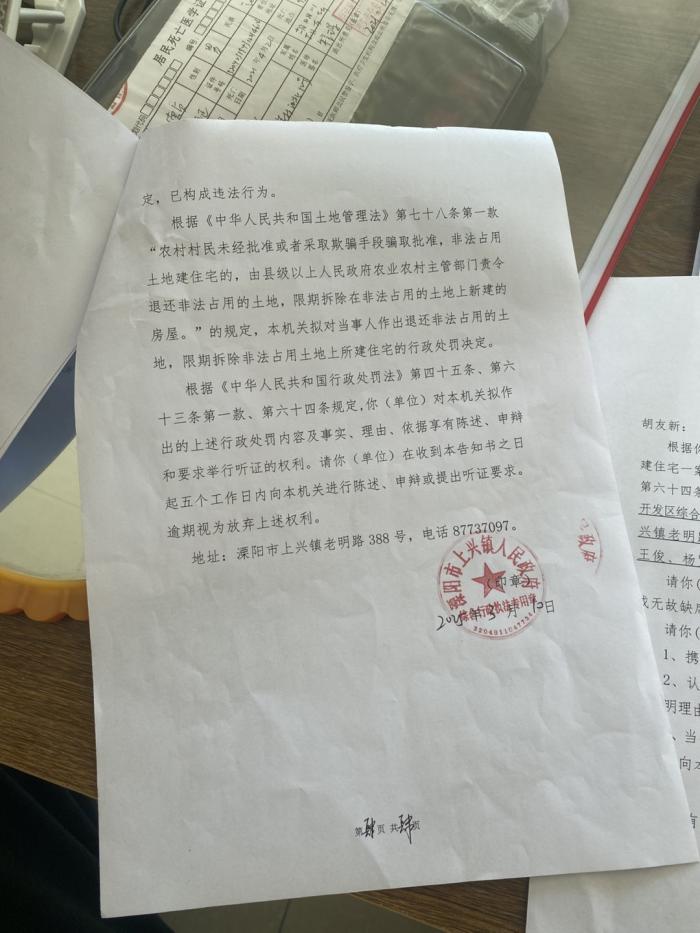 居民死亡医学证
编号
性别
证件号码
死亡日期
定，已构成违法行为。
根据《中华人民共和国土地管理法》第七十八条第一款
“农村村民未经批准或者采取欺骗手段骗取批准，非法占用
土地建住宅的，由县级以上人民政府农业农村主管部门责令
退还非法占用的土地，限期拆除在非法占用的土地上新建的
房屋。”的规定，本机关拟对当事人作出退还非法占用的土
地，限期拆除非法占用土地上所建住宅的行政处罚决定。
根据《中华人民共和国行政处罚法》第四十五条、第六
十三条第一款、第六十四条规定,你（单位）对本机关拟作
出的上述行政处罚内容及事实、理由、依据享有陈述、申辩
和要求举行听证的权利。请你（单位）在收到本告知书之日
起五个工作日内向本机关进行陈述、申辩或提出听证要求。
逾期视为放弃上述权利。
地址：溧阳市上兴镇老明路 388 号，电话 87737097。
溧阳市上兴镇人民政府
（印章）
综合行政执法专用章
2025年3月10日
第肆页 共肆页
政府
胡友新：
根据你
建住宅一案
第六十四条
开发区综合
兴镇老明路
王俊、杨
请你(
或无故缺席
请你(
1、携
2、认
明理由
、当
向本
有